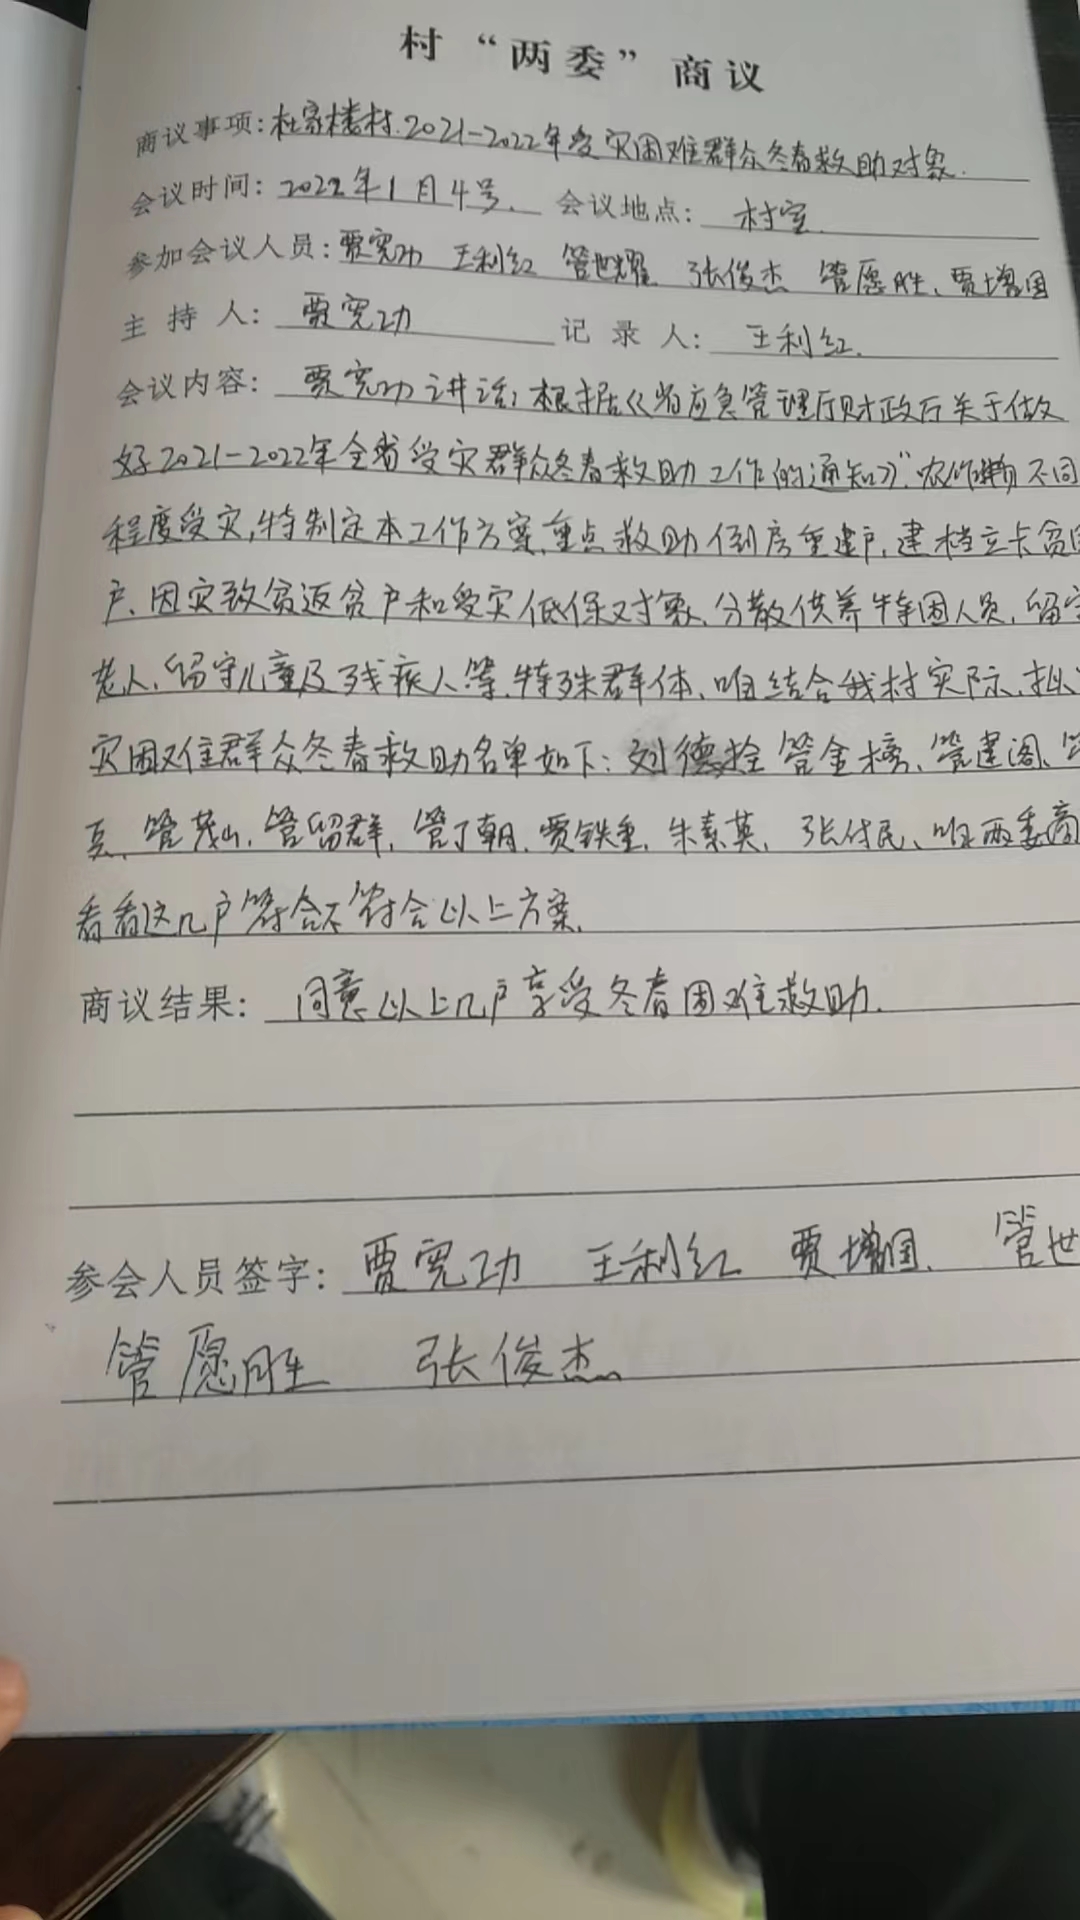 村“两委”商议
商议事项:杜家楼村.2021-2022年受灾困难群众冬春救助对象.
会议时间:2022年1月4号. 会议地点: 村室.
参加会议人员:贾宪功 王利红 管世耀 张俊杰 管愿胜、贾增国
主 持 人: 贾宪功 记 录 人: 王利红.
会议内容: 贾宪功讲话:根据《省应急管理厅财政厅关于做
好2021-2022年全省受灾群众冬春救助工作的通知》".农作物不同
程度受灾,特制定本工作方案.重点救助倒房重建户,建档立卡贫困
户、因灾致贫返贫户和受灾低保对象、分散供养特困人员,留守
老人、留守儿童及残疾人等.特殊群体、咱结合我村实际,拟
灾困难群众冬春救助名单如下:刘德拴 管金榜、管建阁、
管茂山,管留群,管丁朝.贾铁重,朱素英,张付民、咱两委商
看看这几户符合不符合以上方案.
商议结果: 同意以上几户享受冬春困难救助.
参会人员签字: 贾宪功 王利红 贾增国. 管世
管愿胜 张俊杰